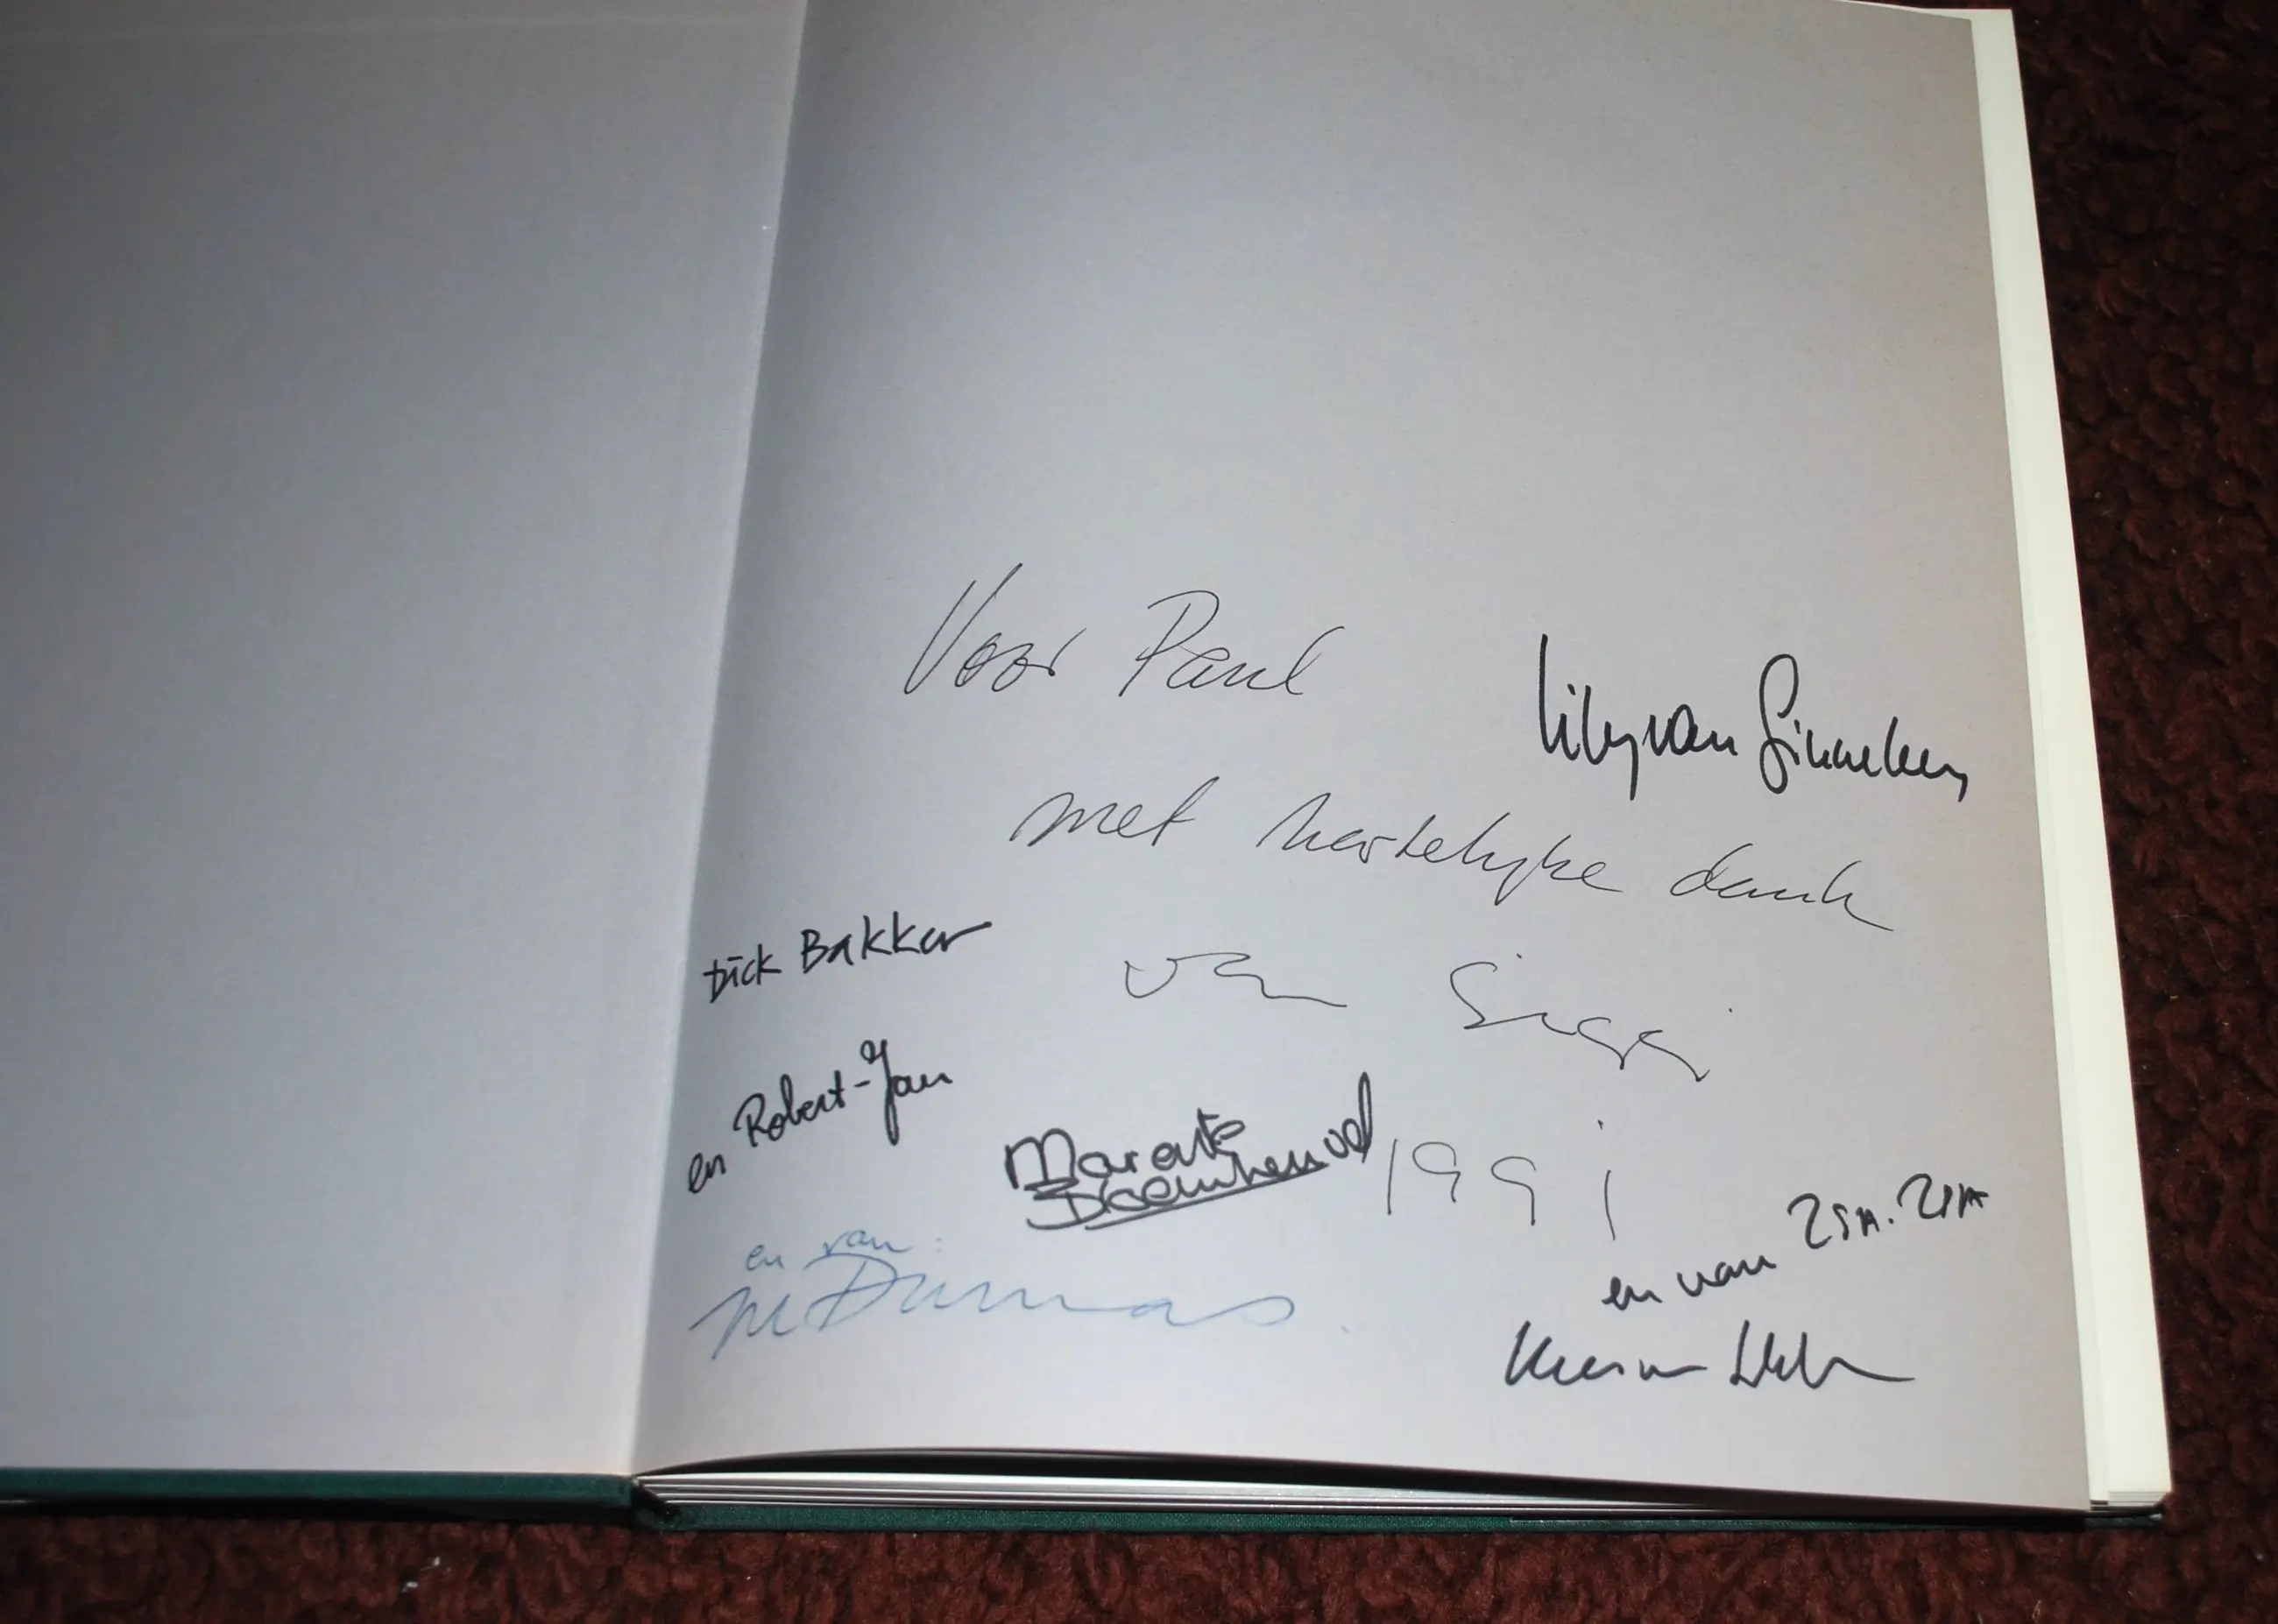 Voor Paul
Lily van Ginneken
met hartelijke dank
Dick Bakker
van Siggi
en Robert-Jan
Marente Bloemheuvel
1991
en van:
M Dumas
en van